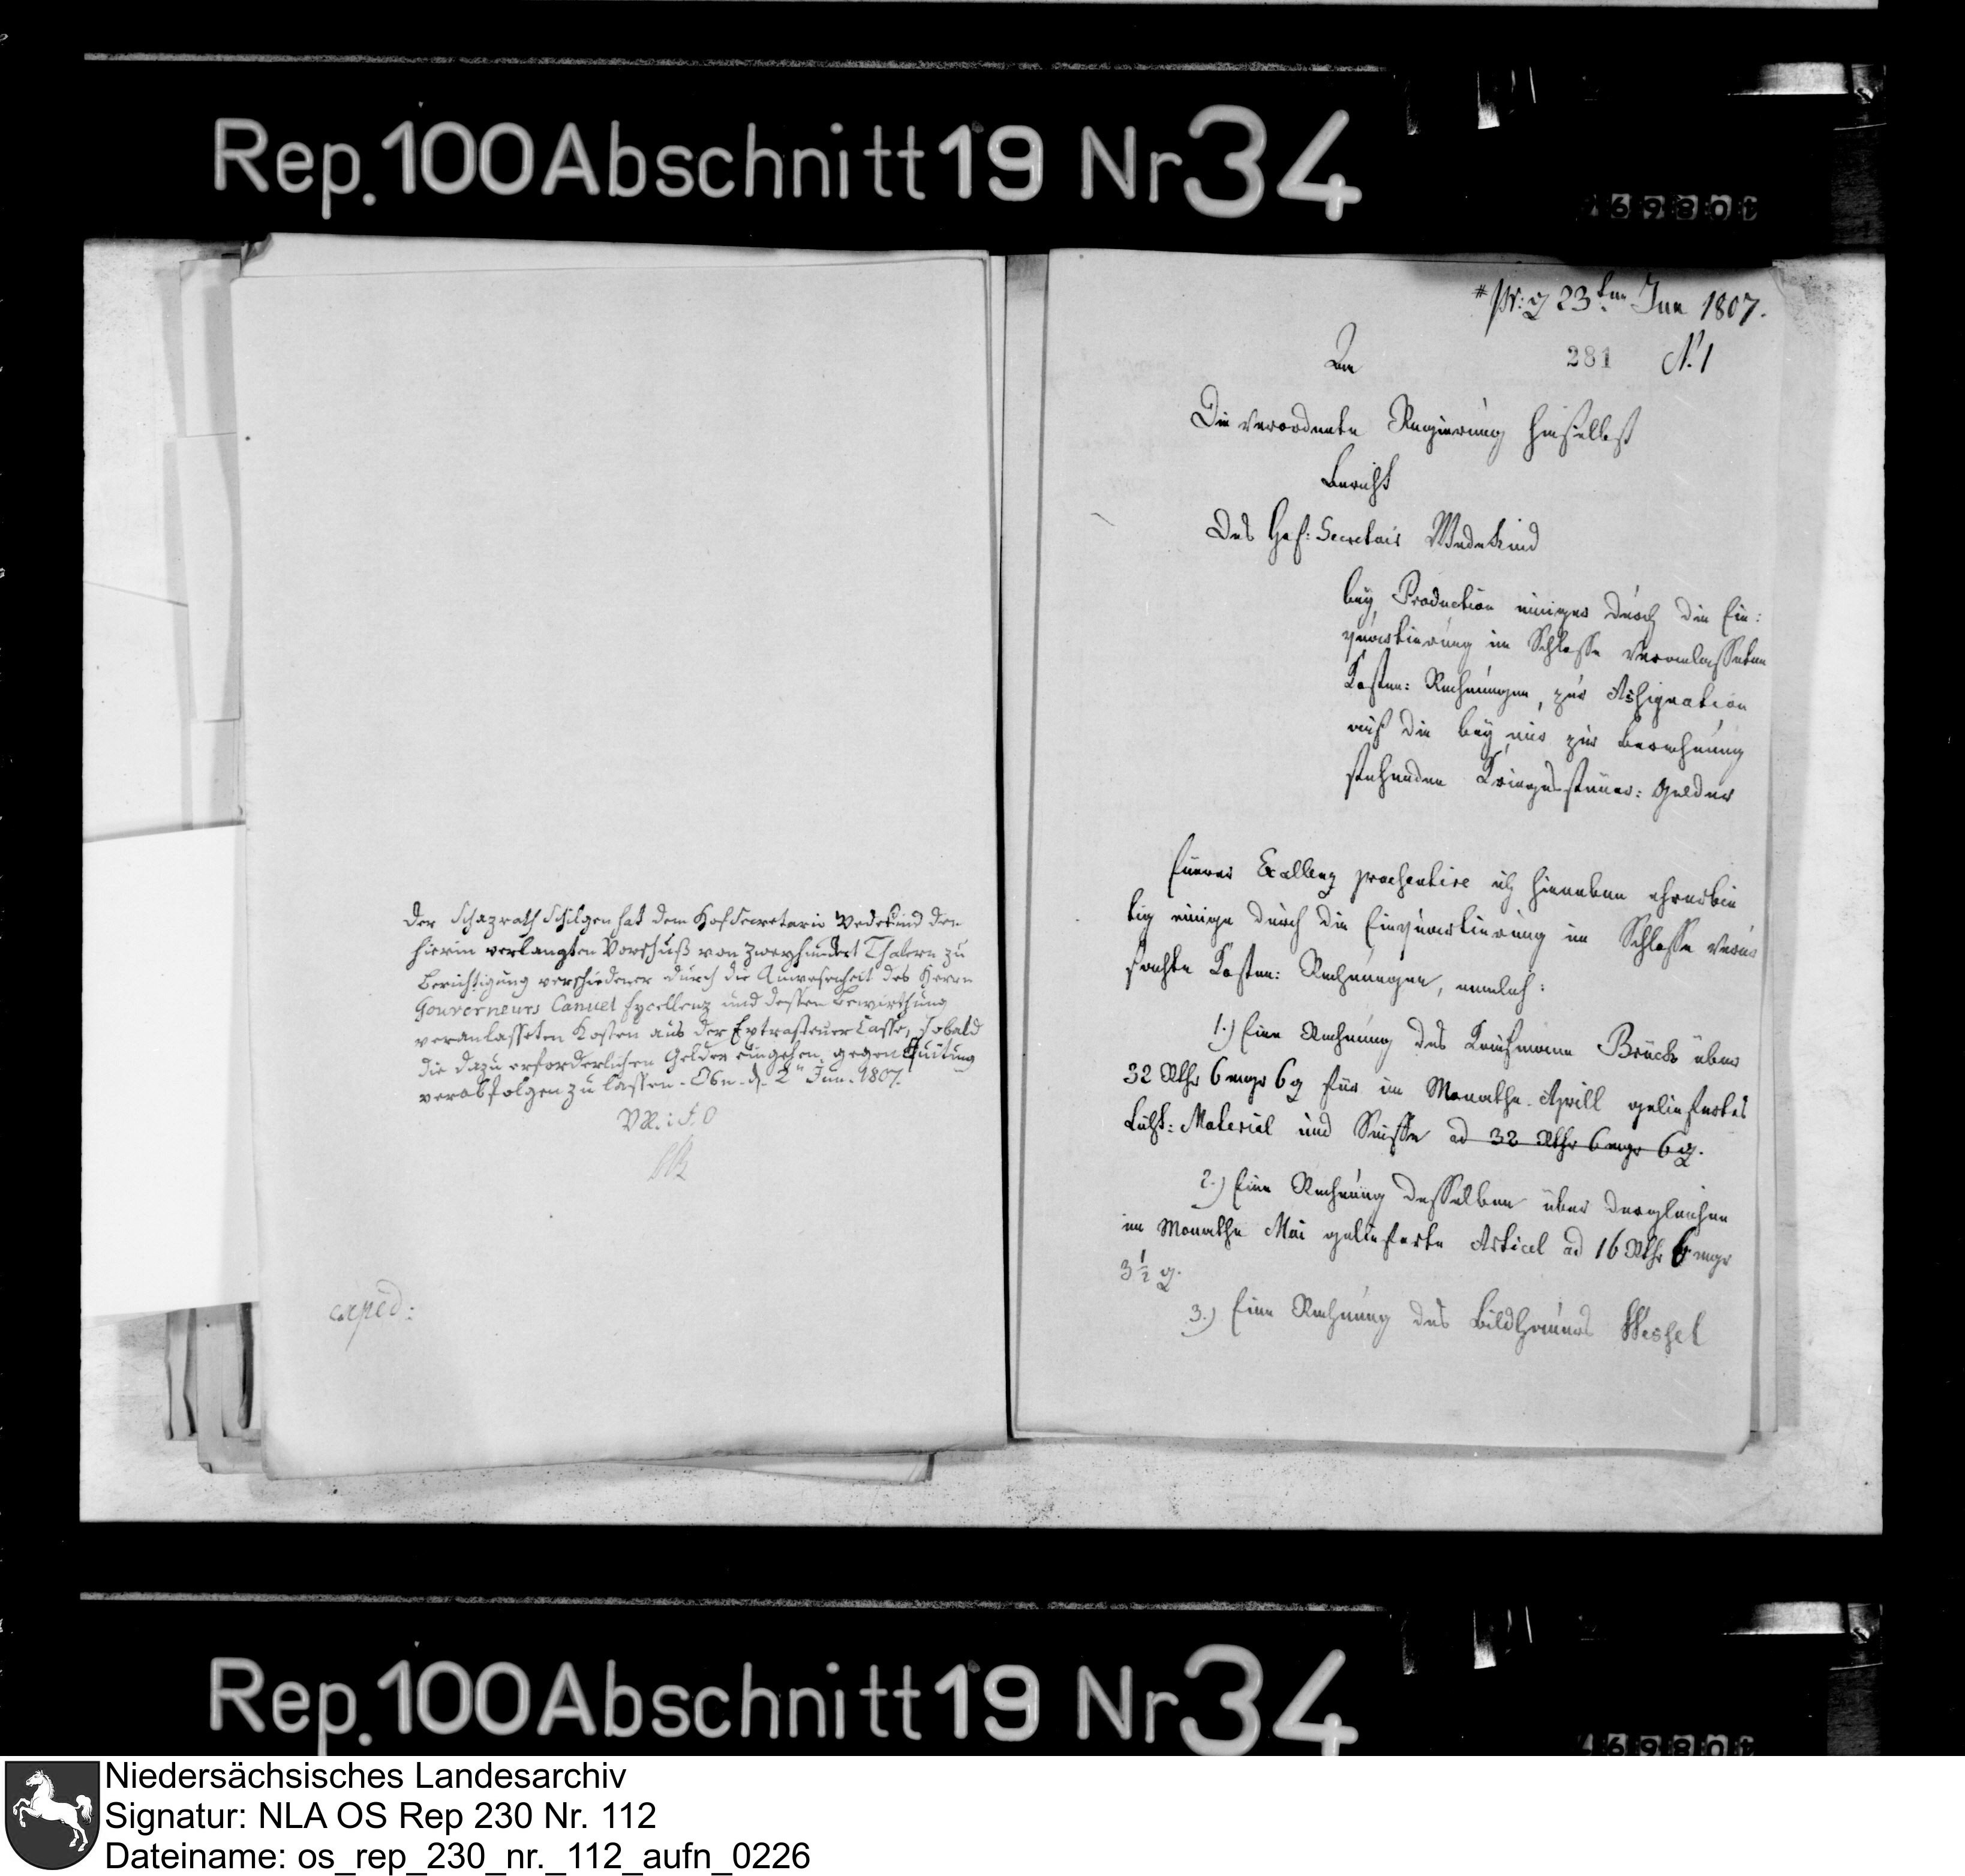 Rep. 100 Abschnitt 19 Nr 34
Der Schazrath Schilgen hat dem Hofsecretario Wedekind den
hierin verlangten Vorschuß von zweyhundert Thalern zu
Berichtigung verschiedener durch die Anwesenheit des Herrn
Gouverneurs Canuel Excellenz und dessen Bewirthung
veranlasseten Kosten aus der Extrasteuer Casse, sobald
die dazu erforderlichen Gelder eingehen, gegen Quitung
verabfolgen zu lassen. Osn. d. 2n Jun. 1807.
exped:
pr: d 23ten Jun 1807.
An
281 N. 1
Die verordnete Regierung hieselbst
Bericht
Des Hof: Secretair Wedekind
bey Production einiger durch die Ein:
quartierung im Schlosse veranlasseten
Kosten: Rechnungen, zur Assignation
auf die bey mir zur Berechnung
stehenden Kriegessteuer: Gelder
Euerer Excellenz praesentire ich hieneben ehrerbie
tig einige durch die Einquartierung im Schlosse verur
sachte Kosten: Rechnungen, nemlich:
1.) Eine Rechnung des Kaufmann Brück über
32 Rthr 6 mgr 6 d für im Monathe Aprill geliefertes
Licht: Material und Seiffe ad 32 Rthr 6 mgr 6 d.
2.) Eine Rechnung desselben über dergleichen
im Monathe Mai gelieferte Articel ad 16 Rthr 6 mgr
3 1/2 d.
3.) Eine Rechnung des Bildhauers Wessel
Rep. 100 Abschnitt 19 Nr 34
Niedersächsisches Landesarchiv
Signatur: NLA OS Rep 230 Nr. 112
Dateiname: os_rep_230_nr._112_aufn_0226